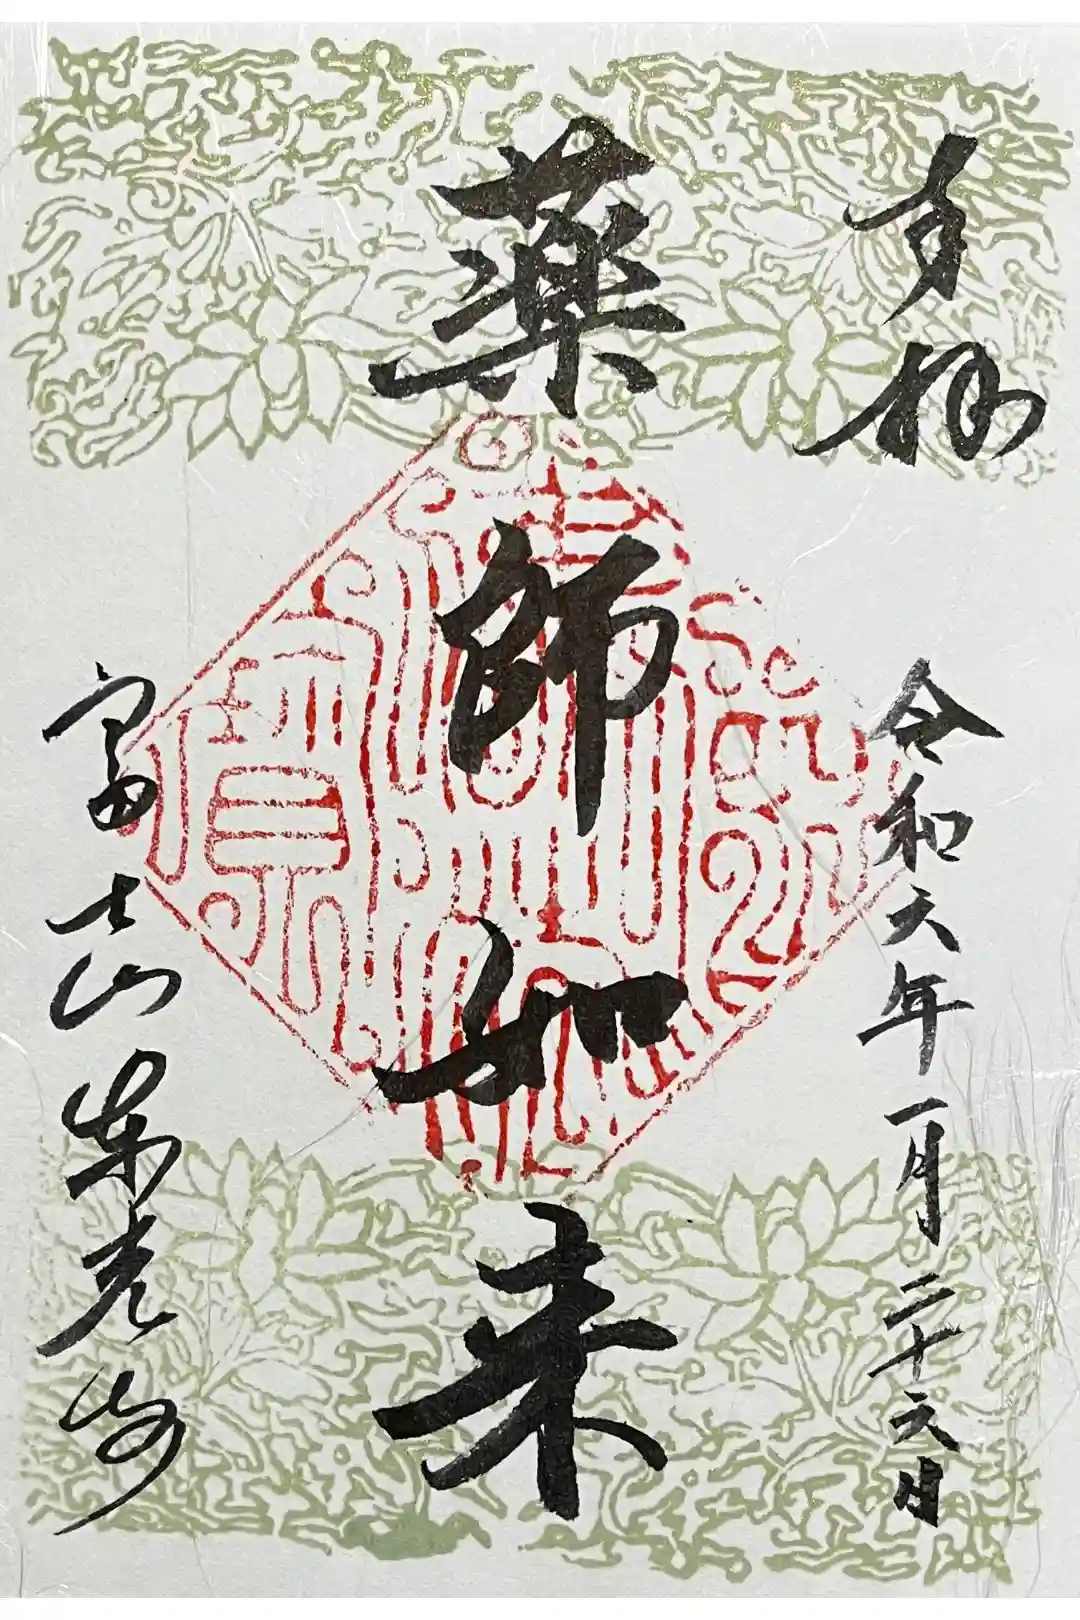 奉拝
令和六年一月二十六日
薬師如来
富士山東光寺